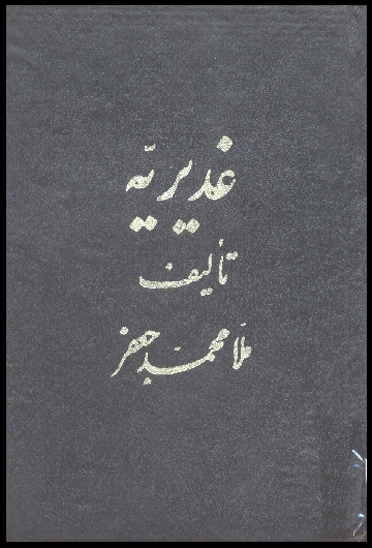 غدیریّه
تألیف
ملّا محمّد جعفر